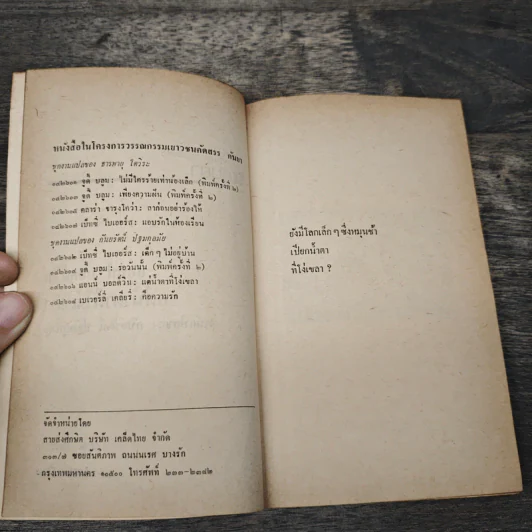 หนังสือในโครงการวรรณกรรมเยาวชนคัดสรร กับเรา
ชุดงานแปลของ ธารพายุ ไตวิระ
๐๔๒๖๐๑ จูดี้ บลูม: ไม่มีใครร้ายเท่าน้องเล็ก (พิมพ์ครั้งที่ ๒)
๐๔๒๖๐๓ จูดี้ บลูม: เพียงความฝัน (พิมพ์ครั้งที่ ๒)
คลาร่า : ถาก่อนอย่าร้องไห้
เบ็ทซี่ ไบเออร์ส: มอบรักในห้องเรียน
ชุดงานแปลของ กันยรัตน์ ปฐมกุลมัย
๐๔๒๖๐๒ เบ็ทซี่ ไบเออร์ส: เด็กๆ ไม่อยู่บ้าน
จูดี้ บลูม: รอวันนั้น (พิมพ์ครั้งที่ ๒)
แอนนี่ บอลด์วิน: แด่น้ำตาที่โง่เขลา
เบเวอร์ลี่ เคลียรี่: คือความรัก
จัดจำหน่ายโดย
สายส่งศึกษิต บริษัท เคล็ดไทย จำกัด
๓๐๓/๗ ซอยสันติภาพ ถนนนเรศ บางรัก
กรุงเทพมหานคร ๑๐๕๐๐ โทรศัพท์
ยังมีโลกเล็ก ๆ ซึ่งหมุนช้า
เปียกน้ำตา
ที่โง่เขลา ?